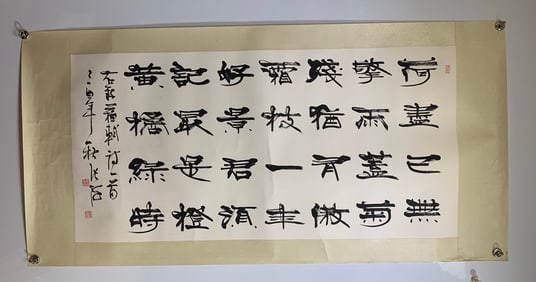 荷盡已無
擎雨蓋菊
殘猶有傲
霜枝一年
好景君須
記最是橙
黃橘綠時
右錄蘇軾詩一首
酉年秋